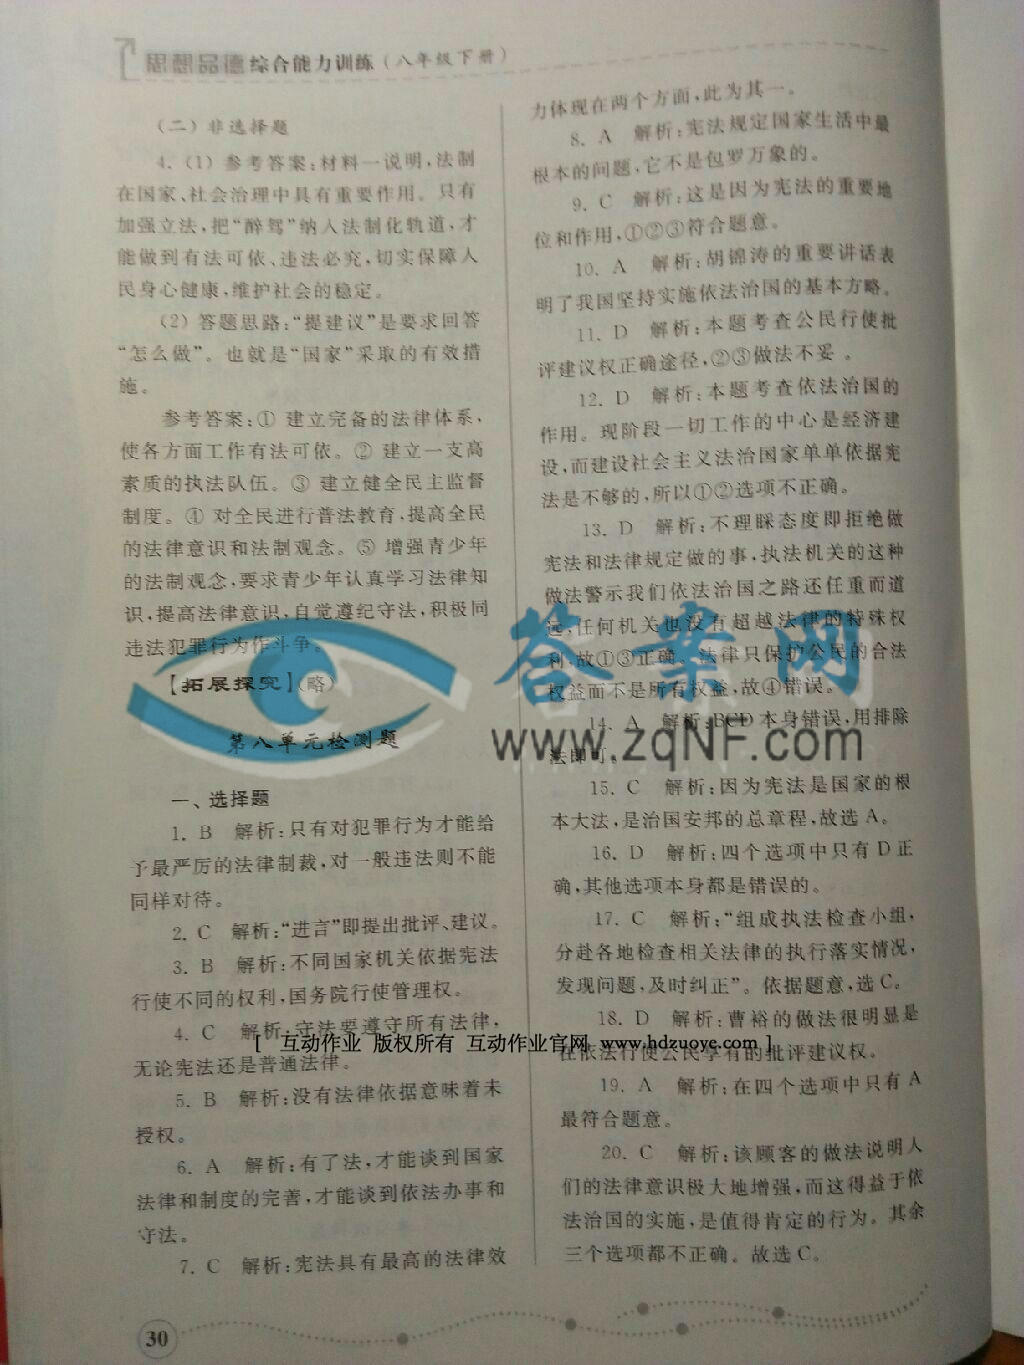 思想品德综合能力训练(八年级下册)
(二) 非选择题
4. (1) 参考答案:材料一说明,法制
在国家、社会治理中具有重要作用。只有
加强立法,把“醉驾”纳入法制化轨道,才
能做到有法可依、违法必究,切实保障人
民身心健康,维护社会的稳定。
(2) 答题思路:“提建议”是要求回答
“怎么做”。也就是“国家”采取的有效措
施。
参考答案:① 建立完备的法律体系,
使各方面工作有法可依。② 建立一支高
素质的执法队伍。③ 建立健全民主监督
制度。④ 对全民进行普法教育,提高全民
的法律意识和法制观念。⑤ 增强青少年
的法制观念,要求青少年认真学习法律知
识,提高法律意识,自觉遵纪守法,积极同
违法犯罪行为作斗争。
【拓展探究】(略)
第八单元检测题
一、选择题
1. B 解析:只有对犯罪行为才能给
予最严厉的法律制裁,对一般违法则不能
同样对待。
2. C 解析:“进言”即提出批评、建议。
3. B 解析:不同国家机关依据宪法
行使不同的权利,国务院行使管理权。
4. C 解析:守法要遵守所有法律,
无论宪法还是普通法律。
5. B 解析:没有法律依据意味着未
授权。
6. A 解析:有了法,才能谈到国家
法律和制度的完善,才能谈到依法办事和
守法。
7. C 解析:宪法具有最高的法律效
30
力体现在两个方面,此为其一。
8. A 解析:宪法规定国家生活中最
根本的问题,它不是包罗万象的。
9. C 解析:这是因为宪法的重要地
位和作用,①②③符合题意。
10. A 解析:胡锦涛的重要讲话表
明了我国坚持实施依法治国的基本方略。
11. D 解析:本题考查公民行使批
评建议权正确途径,②③做法不妥 。
12. D 解析:本题考查依法治国的
作用。现阶段一切工作的中心是经济建
设,而建设社会主义法治国家单单依据宪
法是不够的,所以①②选项不正确。
13. D 解析:不理睬态度即拒绝做
宪法和法律规定做的事,执法机关的这种
做法警示我们依法治国之路还任重而道
远,任何机关也没有超越法律的特殊权
利,故①③正确。法律只保护公民的合法
权益而不是所有权益,故④错误。
14. A 解析:BCD本身错误,用排除
法即可。
15. C 解析:因为宪法是国家的根
本大法,是治国安邦的总章程,故选 A。
16. D 解析:四个选项中只有 D 正
确,其他选项本身都是错误的。
17. C 解析:“组成执法检查小组,
分赴各地检查相关法律的执行落实情况,
发现问题,及时纠正”。依据题意,选 C。
18. D 解析:曹裕的做法很明显是
在依法行使公民享有的批评建议权。
19. A 解析:在四个选项中只有 A
最符合题意。
20. C 解析:该顾客的做法说明人
们的法律意识极大地增强,而这得益于依
法治国的实施,是值得肯定的行为。其余
三个选项都不正确。故选 C。
答案网
www.zqNF.com
[ 互动作业 版权所有 互动作业官网 www.hdzuoye.com ]